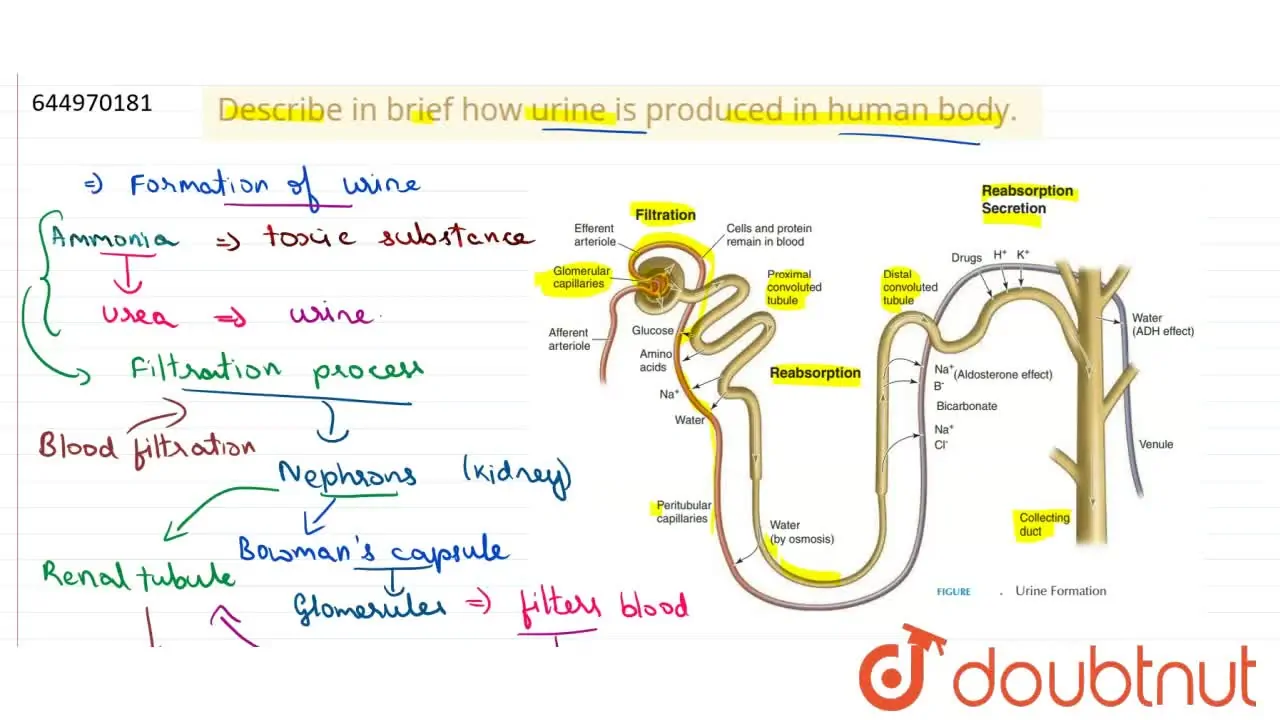 644970181
Describe in brief how urine is produced in human body.
⇒ Formation of urine
Ammonia ⇒ toxic substance
urea ⇒ urine.
Filtration process
Blood filtration
Nephrons (kidney)
Bowman's capsule
Renal tubule
Glomerules ⇒ filters blood
Filtration
Efferent
arteriole
Cells and protein
remain in blood
Glomerular
capillaries
Proximal
convoluted
tubule
Afferent
arteriole
Glucose
Amino
acids
Na⁺
Water
Reabsorption
Peritubular
capillaries
Water
(by osmosis)
Reabsorption
Secretion
Drugs H⁺ K⁺
Distal
convoluted
tubule
Water
(ADH effect)
Na⁺ (Aldosterone effect)
B⁻
Bicarbonate
Na⁺
Cl⁻
Venule
Collecting
duct
FIGURE . Urine Formation
doubtnut